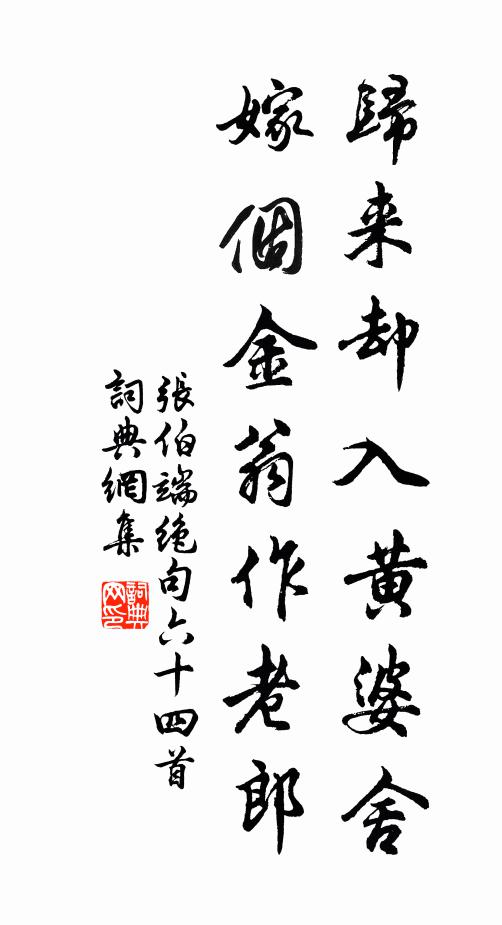 歸来却入黄婆舍
嫁個金翁作老郎
張伯端絶句六十四首
詞典網集
詞典
网印